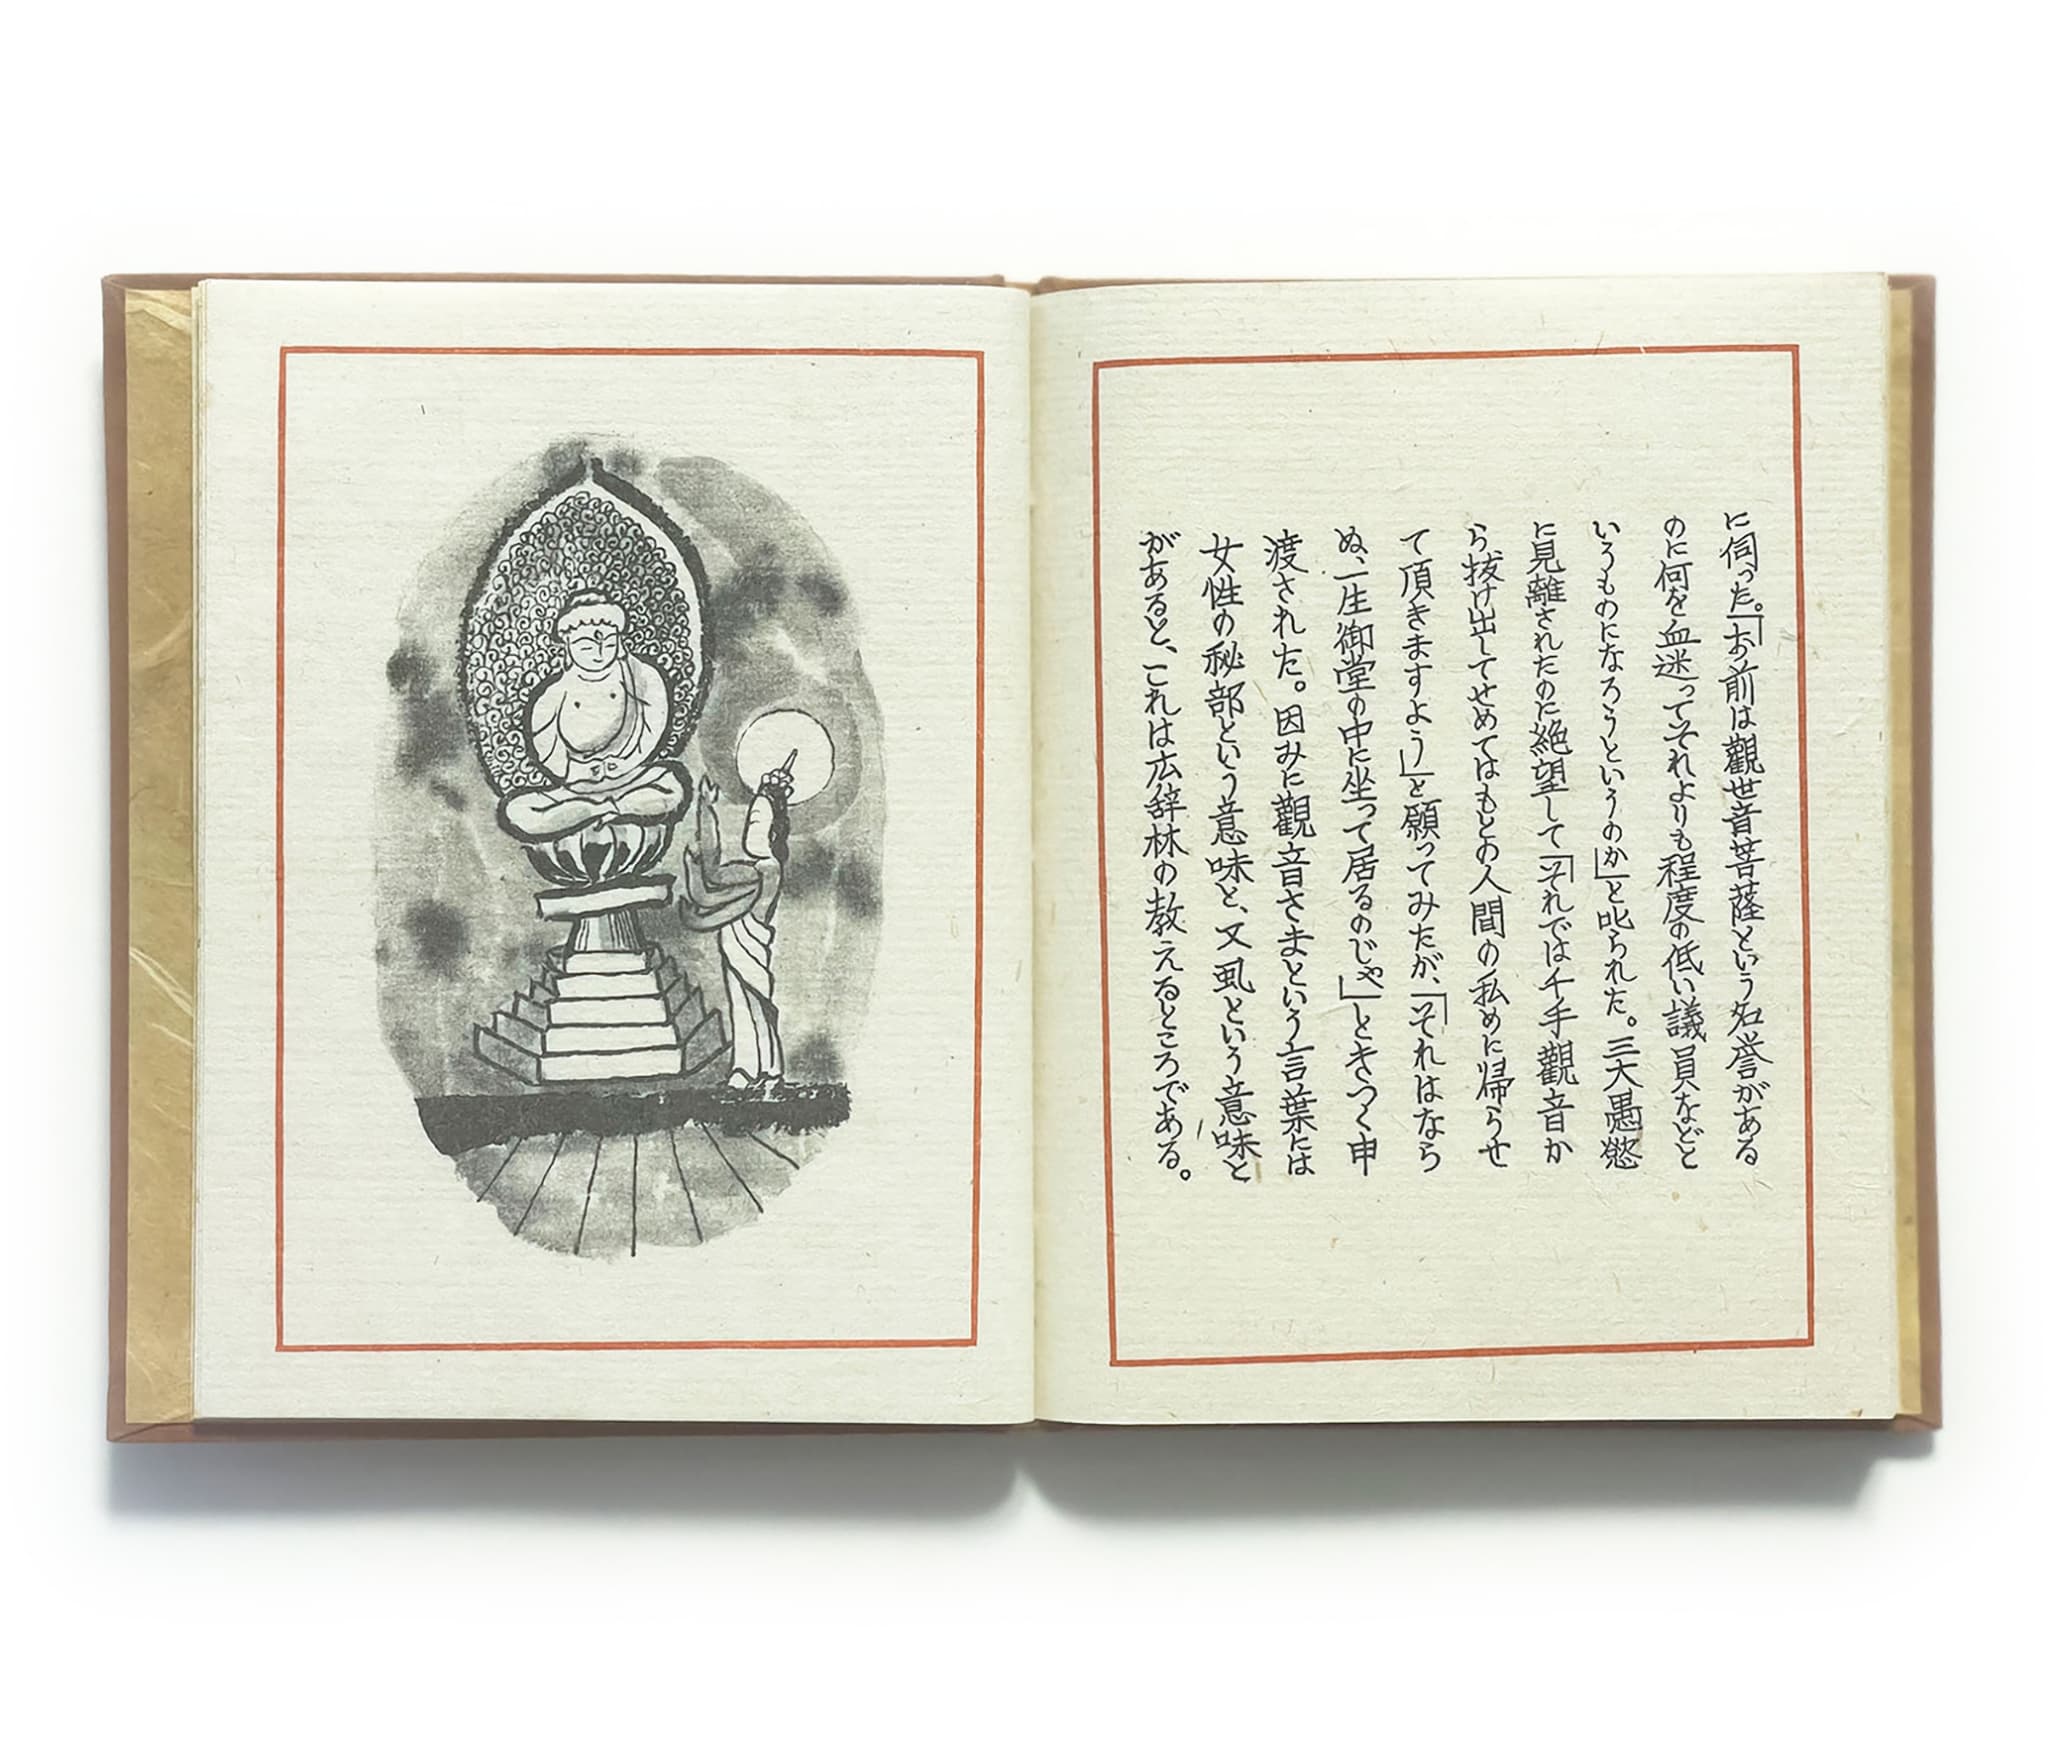 に伺った。「お前は觀世音菩薩という名誉がある
のに何を血迷ってそれよりも程度の低い議員などと
いうものになろうというのか」と叱られた。三大愚慾
に見離されたのに絶望して「それでは千手觀音か
ら抜け出してせめてはもとの人間の私めに帰らせ
て頂きますよう」と願ってみたが、「それはなら
ぬ、一生御堂の中に坐って居るのじゃ」ときつく申
渡された。因みに觀音さまという言葉には
女性の秘部という意味と、又虱という意味と
があると、これは広辞林の教えるところである。